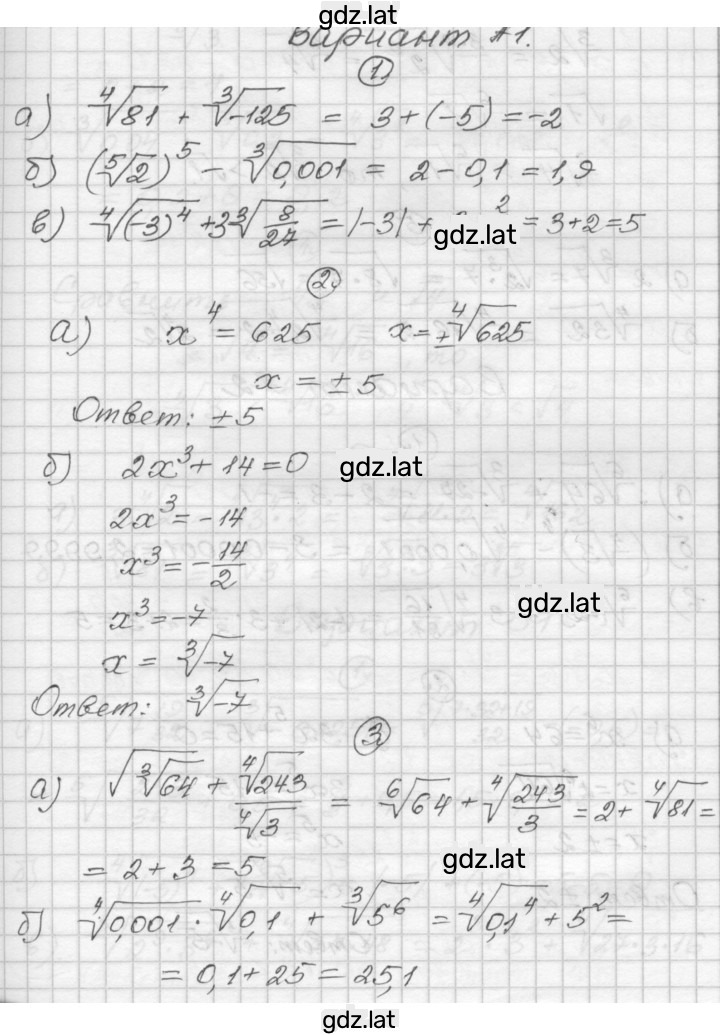 gdz.lat
Вариант А1.
1)
а) ⁴√81 + ³√-125 = 3 + (-5) = -2
б) (⁵√2)⁵ - ³√0,001 = 2 - 0,1 = 1,9
в) ⁴√(-3)⁴ + 3³√8/27 = |-3| + 2 = 3 + 2 = 5
gdz.lat
2)
а) x⁴ = 625 x = ±⁴√625
x = ±5
Ответ: ±5
б) 2x³ + 14 = 0 gdz.lat
2x³ = -14
x³ = -14/2
gdz.lat
x³ = -7
x = ³√-7
Ответ: ³√-7
3
а) √³√64 + ⁴√243/⁴√3 = ⁶√64 + ⁴√243/3 = 2 + ⁴√81 =
= 2 + 3 = 5 gdz.lat
б) ⁴√0,001 · ⁴√0,1 + ³√5⁶ = ⁴√0,1⁴ + 5² =
= 0,1 + 25 = 25,1
gdz.lat